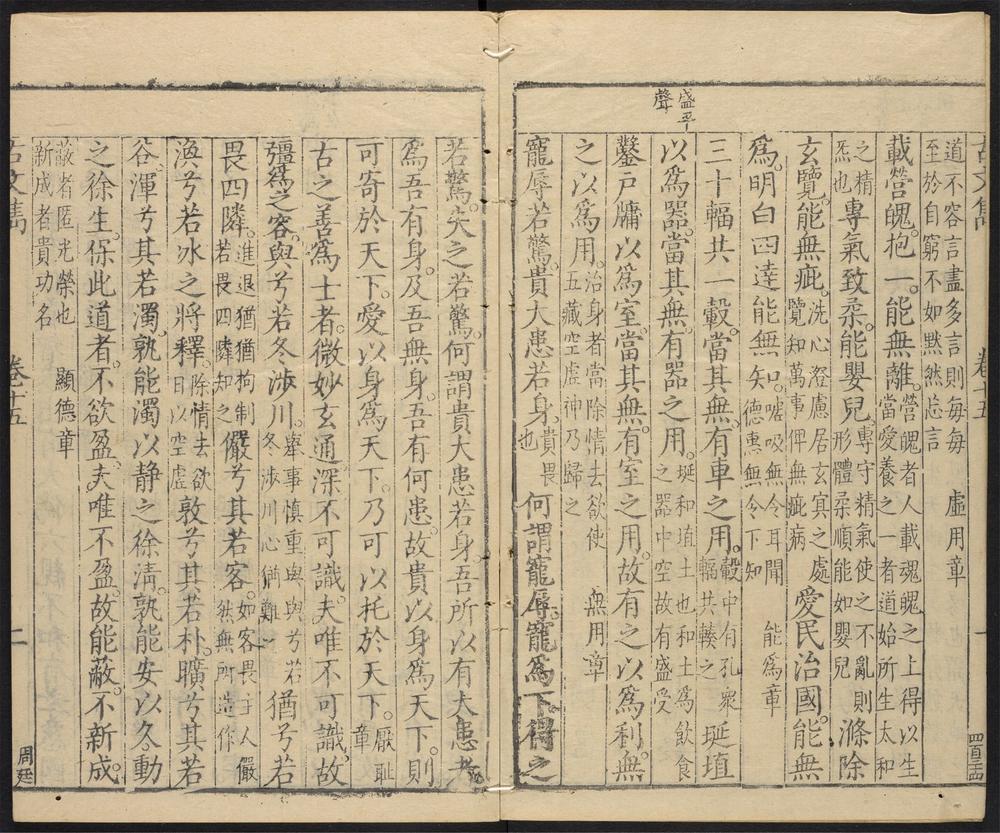 盛平
聲
道不容言盡多言則每每 虛用章
至於自窮不如默然忘言
載營魄抱一能無離營魄者人載魂魄之上得以生
當愛養之一者道始所生太和
之精炁也專氣致柔能嬰兒專守精氣使之不亂則形體柔順能如嬰兒滌除
玄覽能無疵洗心澄慮居玄冥之處覽知萬事俾無疵病愛民治國能無
爲明白四達能無知噓吸無令耳聞德惠無令下知 能爲章
三十輻共一轂當其無有車之用轂中有孔衆輻共輳之埏埴
以爲器當其無有器之用埏和埴土也和土爲飲食之器中空故有盛受
鑿戶牖以爲室當其無有室之用故有之以爲利無
之以爲用治身者當除情去欲使五藏空虛神乃歸之 無用章
寵辱若驚貴大患若身貴畏也何謂寵辱寵爲下得之
卷十五
若驚失之若驚何謂貴大患若身吾所以有大患者
爲吾有身及吾無身吾有何患故貴以身爲天下則
可寄於天下愛以身爲天下乃可以托於天下厭恥章
古之善爲士者微妙玄通深不可識夫唯不可識故
彊爲之容與兮若冬涉川舉事慎重與與兮若冬涉川心猶難猶兮若
畏四隣進退猶猶拘制若畏四隣知之儼兮其若客如客畏主人儼然無所造作
渙兮若冰之將釋除情去欲日以空虛敦兮其若朴曠兮其若
谷渾兮其若濁孰能濁以靜之徐清孰能安以久動
之徐生保此道者不欲盈夫唯不盈故能蔽不新成
蔽者匿光榮也新成者貴功名 顯德章
卷十五
二
周廷